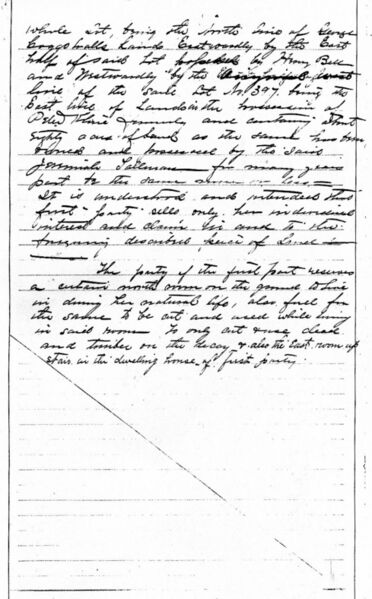 whole Lot, being the North line of George
Coggshalls Land Eastwardly by the East
half of said Lot by Henry Bell
and Westwardly by the West
line of the said Lot No 397 being the
East line of Land in the possession of
Peter and containing about
eighty acres of land as the same has been
and possessed by the said
Jeremiah Tallman for many years
past be the same more or less
It is understood and intended that
first party sells only her undivided
interest and claim in and to the
foregoing described peice of Land
The party of the first part reserves
a certain north room on the ground to live
in during her natural life, also fuel for
the same to be cut and used while living
in said room to only cut & use dead
and timber on the decay & also the East room up
stairs in the dwelling house of first party.